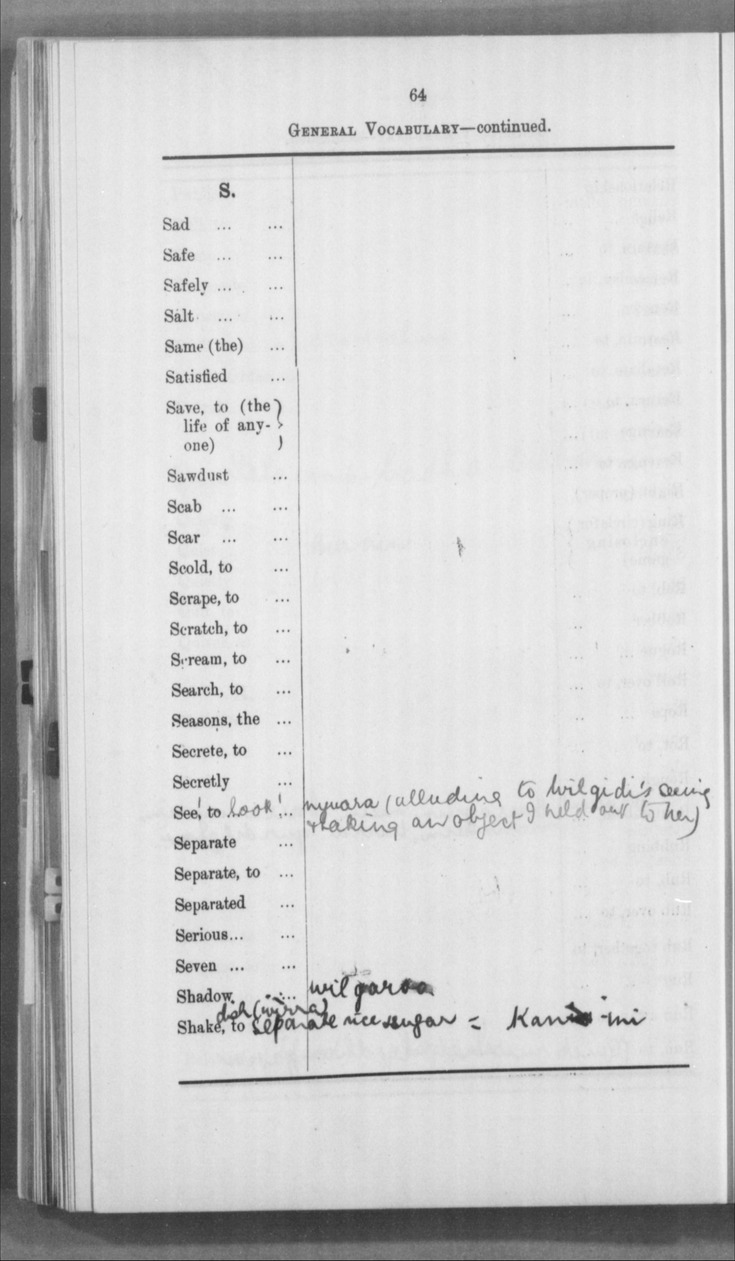 64
GENERAL VOCABULARY—continued.
S.
Sad ... ...
Safe ... ...
Safely ... ...
Salt ... ...
Same (the) ...
Satisfied ...
Save, to (the
life of any-
one)
Sawdust ...
Scab ... ...
Scar ... ...
Scold, to ...
Scrape, to ...
Scratch, to ...
Scream, to ...
Search, to ...
Seasons, the ...
Secrete, to ...
Secretly ...
See, to look! ... nyuara (alluding to Wilgidi's seeing
+ taking an object I held out to her)
Separate ...
Separate, to ...
Separated ...
Serious... ...
Seven ... ...
Shadow ... wilgaroo
dish (wirra)
Shake, to separate rice sugar =